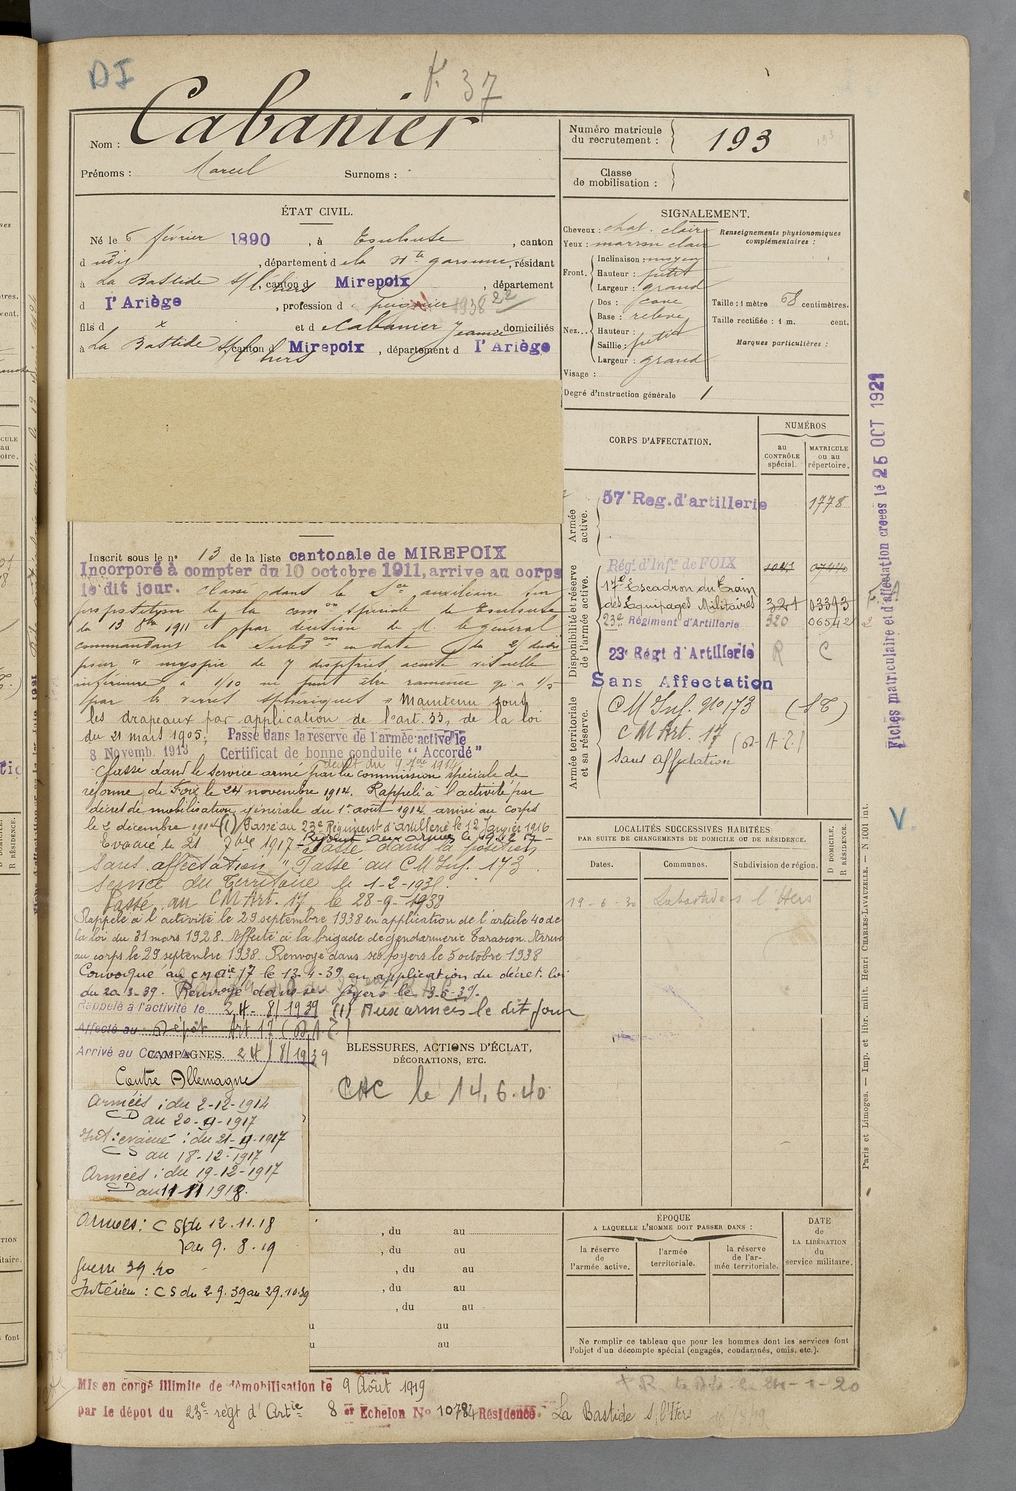 DI
F. 37
Nom : Cabanier
Prénoms : Marcel Surnoms :
Numéro matricule du recrutement : 193
Classe de mobilisation :
ÉTAT CIVIL.
Né le 6 février 1890, à Toulouse, canton
d udit, département d e la Hte garonne, résidant
à La Bastide s/l'hers, canton d Mirepoix, département
d l'Ariège, profession d
fils d x et d e Cabanier Jeanne domiciliés
à La Bastide s/l hers, canton d Mirepoix, département d l'Ariège
SIGNALEMENT.
Cheveux : chat. clair
Yeux : marron clair
Front. Inclinaison : moyen
Hauteur : petit
Largeur : grand
Nez. Dos : cave
Base : relevé
Hauteur :
Saillie : petit
Largeur : grand
Visage :
Degré d'instruction générale 1
Renseignements physionomiques complémentaires :
Taille : 1 mètre 68 centimètres.
Taille rectifiée : 1 m. cent.
Marques particulières :
Inscrit sous le n° 13 de la liste cantonale de MIREPOIX
Incorporé à compter du 10 octobre 1911, arrive au corps
le dit jour. Classé dans le Sce auxiliaire sur
proposition de la comon spéciale de Toulouse
du 13 8bre 1911 et par décision de M. le général
commandant la Subdon en date du
pour " myopie de 7 dioptries, acuité visuelle
inférieure à 1/10 ne peut être ramenée qu'à
par les verres sphériques " Maintenu sous
les drapeaux par application de l'art. 33, de la loi
du 21 mars 1905. Passé dans la réserve de l'armée active le
8 Novemb. 1913 Certificat de bonne conduite "Accordé"
Classé dans le service armé par la commission spéciale de
réforme de Foix le 24 novembre 1914. Rappelé à l'activité par
décret de mobilisation générale du 1er août 1914, arrivé au corps
le 2 décembre 1914 (1) Passé au 23e Régiment d'artillerie le 12 Janvier 1916
Evacué le 21
Passé dans la position
Sans affectation " Passé au C M Inf. 173
Service du Territoire le 1-2-1938.
Passé au C M Art. 17 le 28-9-1938
Rappelé à l'activité le 29 septembre 1938 en application de l'article 40 de
la loi du 31 mars 1928. Affecté à la brigade de gendarmerie Tarascon. Arrivé
au corps le 29 septembre 1938. Renvoyé dans ses foyers le 5 octobre 1938
Convoqué au 17 le 13-4-39 en application du décret-loi
du 20-3-39. Renvoyé dans ses foyers le
Rappelé à l'activité le 24-8/1939 (1) Aux armées le dit jour
Affecté au : Dépôt Art 17 (D.A.T)
Arrivé au Corps 24/8/1939
CAMPAGNES.
Contre Allemagne
Armées : du 2-12-1914
CD au 20-9-1917
Int : évacué : du 21-9-1917
CS au 18-12-1917
Armées : du 19-12-1917
CD au 11 11 1918.
Armées : CS du 12.11.18
au 9.8.19
Guerre 39.40
Intérieur : CS du 2 9.39 au 29.10.39
BLESSURES, ACTIONS D'ÉCLAT,
DÉCORATIONS, ETC.
CAC le 14.6.40
, du au
, du au
, du au
, du au
, du au
au
au
CORPS D'AFFECTATION.
NUMÉROS
au CONTRÔLE spécial.
MATRICULE ou au répertoire.
Armée active.
57e Reg. d'artillerie 1778
Disponibilité et réserve de l'armée active.
Rég. d'Infie de FOIX
17e Escadron du Train
des Equipages Militaires 321 03393
23e Régiment d'Artillerie 320 06542
23e Régt d'Artillerie R C
Armée territoriale et sa réserve.
Sans Affectation
C M Inf. No 173 (ST)
C M Art. 17 (D.A.T.)
Sans affectation
LOCALITÉS SUCCESSIVES HABITÉES
PAR SUITE DE CHANGEMENTS DE DOMICILE OU DE RÉSIDENCE.
Dates. Communes. Subdivision de région. D DOMICILE, R RÉSIDENCE.
19-6-30 Labastide s l'Hers
ÉPOQUE
A LAQUELLE L'HOMME DOIT PASSER DANS :
la réserve de l'armée active.
l'armée territoriale.
la réserve de l'armée territoriale.
DATE DE LA LIBÉRATION du service militaire.
Ne remplir ce tableau que pour les hommes dont les services font
l'objet d'un décompte spécial (engagés, condamnés, omis, etc.).
Mis en congé illimité de démobilisation le 9 Août 1919
par le dépôt du 23e régt d'Artie 8e Echelon No 10784 Résidence La Bastide s/l'Hers
Fiches matriculaire et d'affectation créées le 25 OCT 1921
V.
Paris et Limoges. — Imp. et libr. milit. Henri CHARLES-LAVAUZELLE. — N 1001 int.